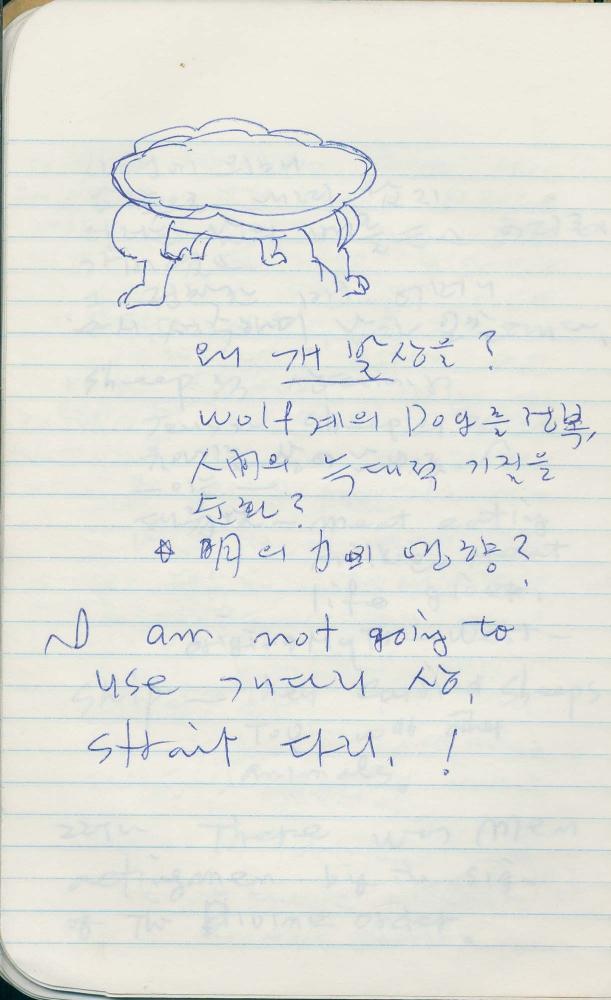 왜 개발상을?
wolf 계의 Dog을 정복,
人間의 늑대적 기질을
순화?
의 영향?
I am not going to
use 개다리 상,
strait 다리. !